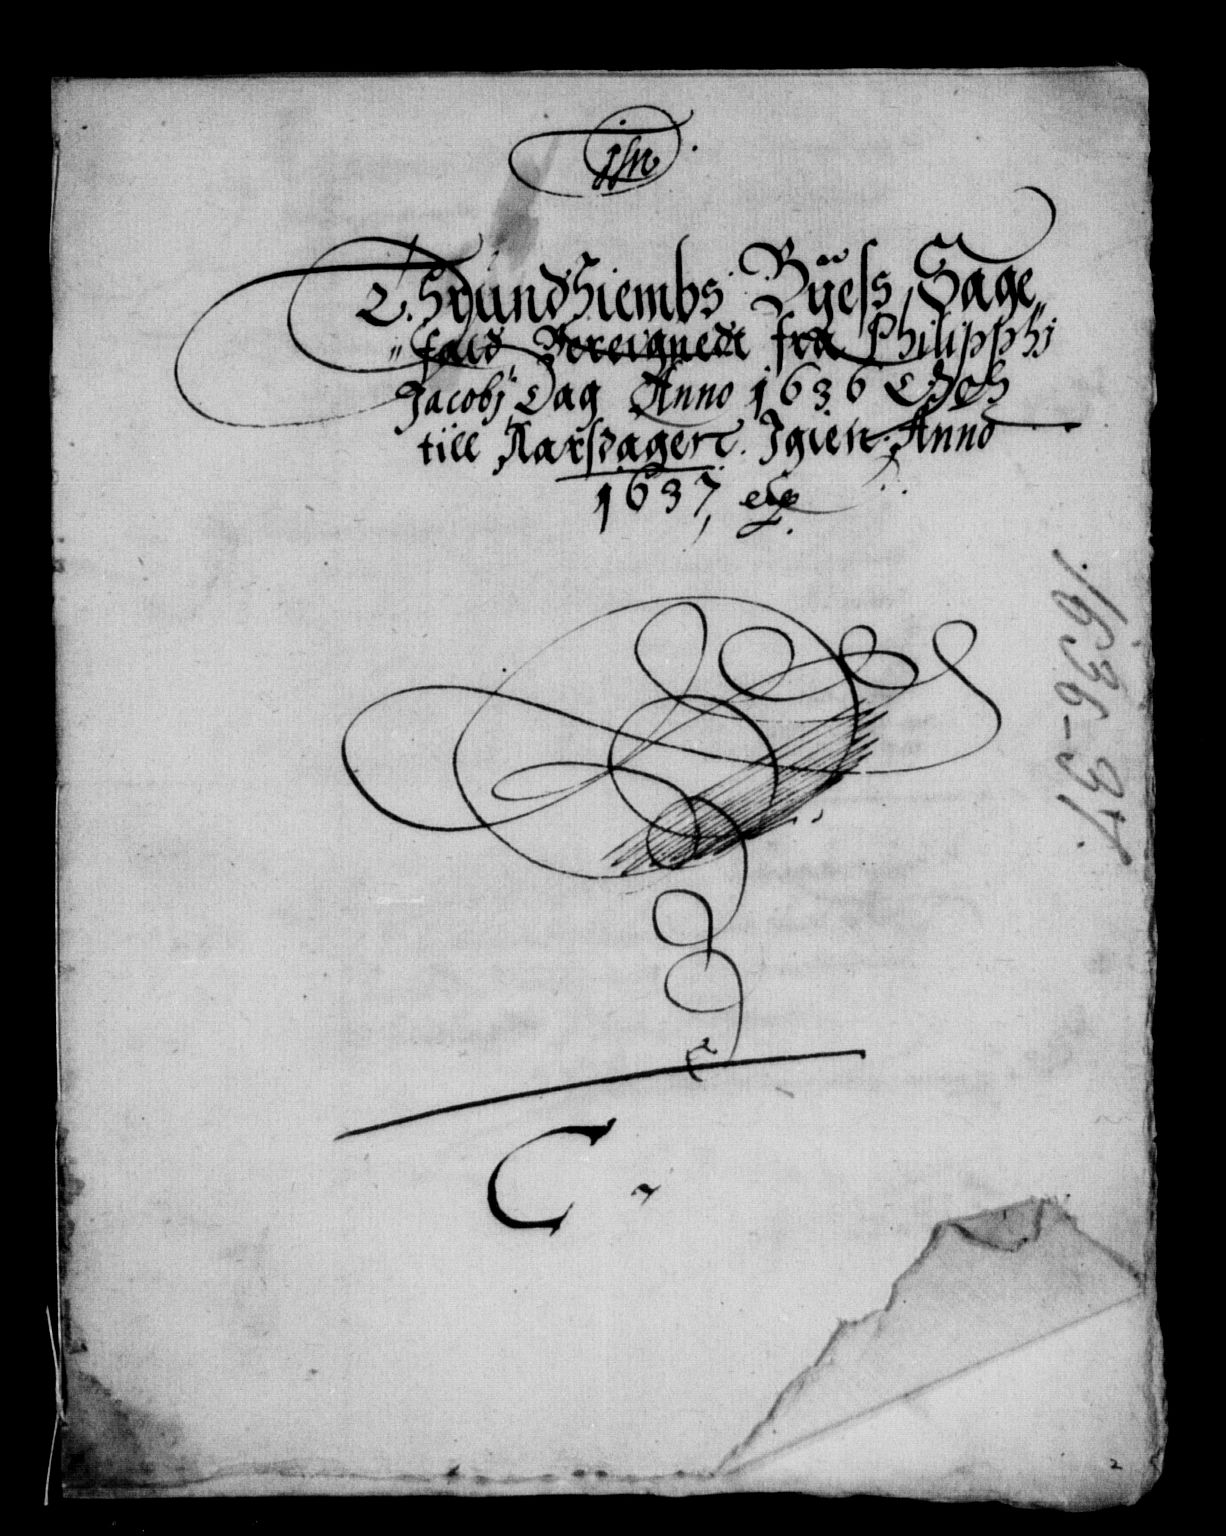 Thrundhiembs Byess Sage
fald Bereignedt fra Philipphj
Jacobj Dag Anno 1636 Och
till Aarsdagenn Igien Anno
1637
1636-37.
C
2